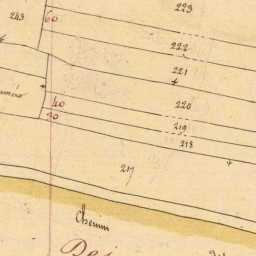 223
243
60
222
221
40
220
30
219
218
217
Chemin